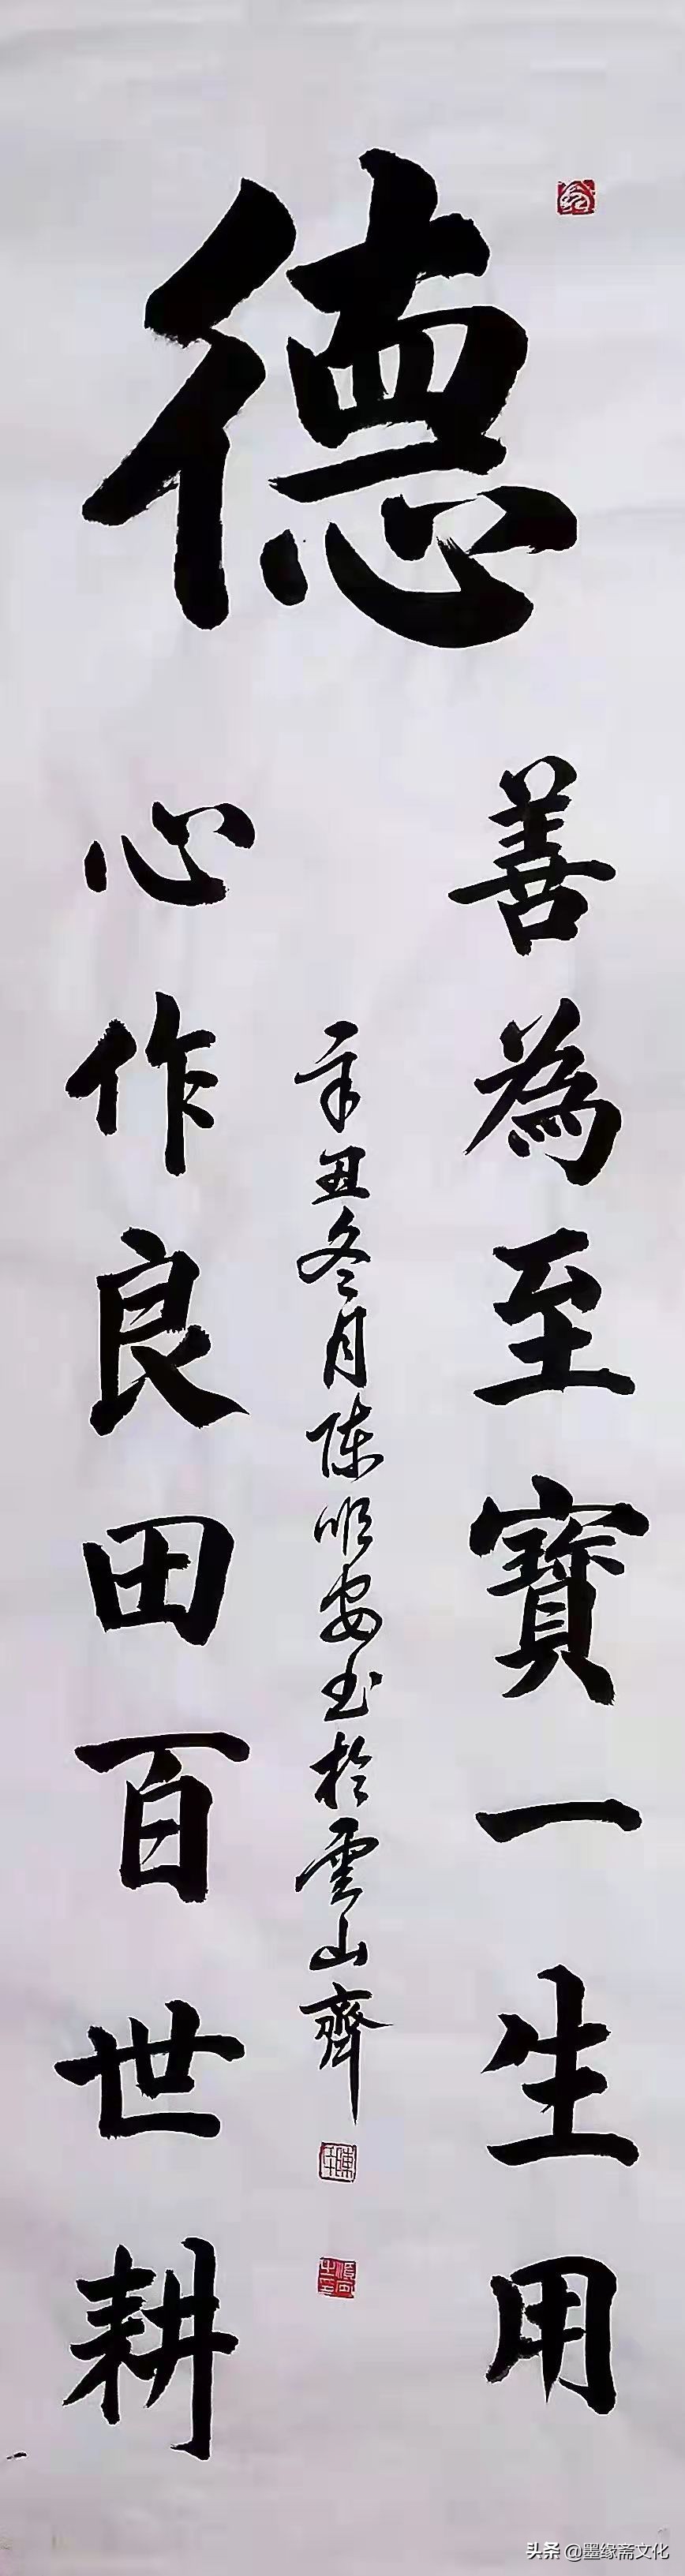 德
善為至寶一生用
心作良田百世耕
辛丑冬月陳順安書於雲山齊
头条 @墨缘斋文化